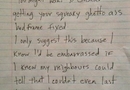 getting your sydney ghetto ass
bed frame fixed
I only suggest this because I
know I'd be embarrassed if
I knew my neighbours could
tell that I couldn't even last